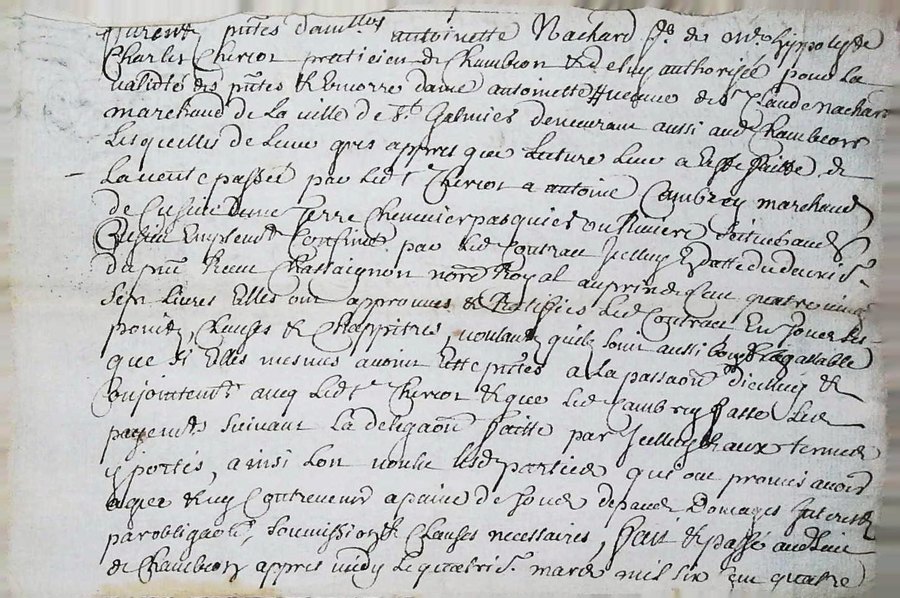 furent ptes damlles antoinette Nachard fe de Me hyppolyte
Charles Cheriot praticien de Chambeon & de luy authorisée pour la
validité des ptes & encorre dame antoinette veufue de Sr Claude nachard
marchand de la ville de St Galmier demeurant aussi aud Chambeon
Lesquelles de leur grés appres que lecture leur a esté faitte de
La vente passée par led Sr Cheriot a antoine Cambrey marchand
de Cusieu dune Terre Cheneuier pasquier ou Riuiere situé aud
Cusieu Confinée par led Contrat Jcelluy En datte du
du pnt Receu Chassaignon nore Royal au prix de Cent quatre vingt
Sept Liures Elles ont approuué & Ratifiés led Contract En tous ses
points, Clauses & Chappitres, voulant quil soit aussi bon & vallable
que si Elles mesmes auoint esté ptes a la passaon dicelluy &
Conjointemt auec led Sr Cheriot & que led Cambrey fasse led
payemt suiuant la delegaon faitte par Jcelluy & aux termes
y portés, ainsi lon voulu lesd parties qui ont promis auoir
agreé & ny Contreuenir a paine de tous depans Domages Jnterests
par obligaon, soumissions & Clauses necessaires, fait & passé aud lieu
de Chambeon appres midy le mars mil six cent quatre